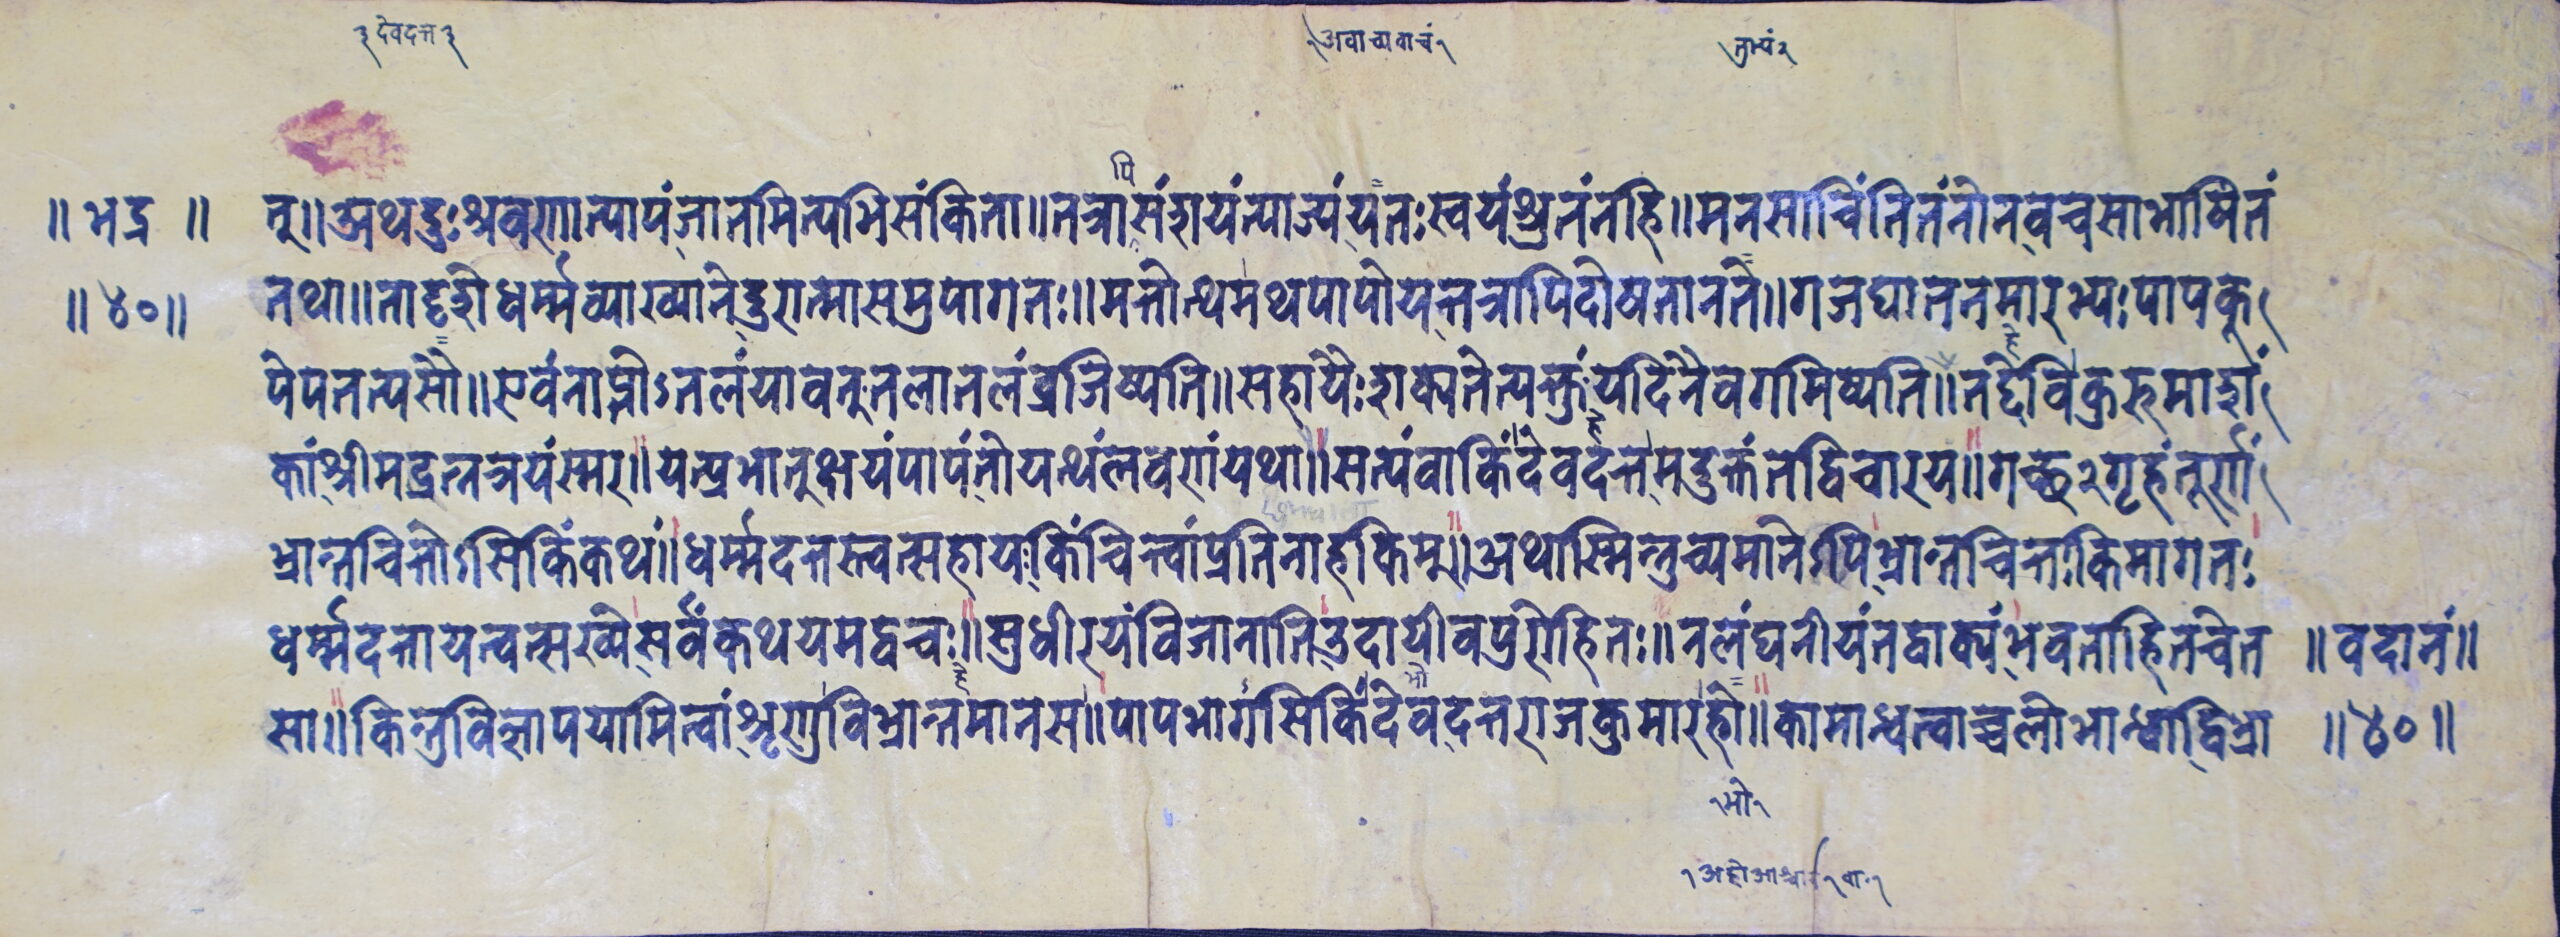 देवदत्त
अवाच्यवाचं
तुभ्यं
पि
॥ भद्र ॥ त्॥ अथ दुःश्रवणात्पापं जातमित्यभिसंकिता॥ तत्रासंशयंत्याज्यं यतः स्वयंश्रुतंनहि॥ मनसाचिंतितंनोन वचसाभाषितं
॥ ४० ॥ तथा॥ तादृशेधर्म्मव्याख्यानेदुरात्मासमुपागतः॥ मतोत्थमथपापोयत्तत्रापिदोषतानते॥ गजघातनमारभ्यः पापकू
पेपतत्यसौ॥ एवंतप्तोऽनलंयावत्तुनलानलंव्रजिष्यति॥ सहायैः शक्यतेत्यक्तुंयदिनैवगमिष्यति॥ तद्देविकुरुमाशं
कां श्रीमद्रत्नत्रयंस्मर॥ यत्प्रभातुक्षयंपापंतोयत्थंलवणंयथा॥ सत्यंवाकिंदेवदत्त मदुक्तंतद्विचारय॥ गच्छ२गृहंतूर्णं
भ्रान्तचित्तोऽसिकिंकथं॥ धर्म्मदत्तस्त्वत्सहायः किंचित्त्वांप्रतिनाहकिम्॥ अथास्मिन्नुच्यमानेऽपिभ्रान्तचित्तः किमागतः
धर्म्मदत्तायत्वत्सख्ये सर्वंकथयमद्वचः॥ सुधीरयंविजानातिउदायीवपुरोहितः॥ नलंघनीयंतद्वाक्यं भवताहितचेत ॥ वदानं॥
सा॥ किन्तुविज्ञापयामित्वां शृणुविभ्रान्तमानस॥ पापभागसिकिंदेवदत्तराजकुमारहो॥ कामान्धत्वाच्चलोभान्धाद्विभ्रा ॥ ४० ॥
भो